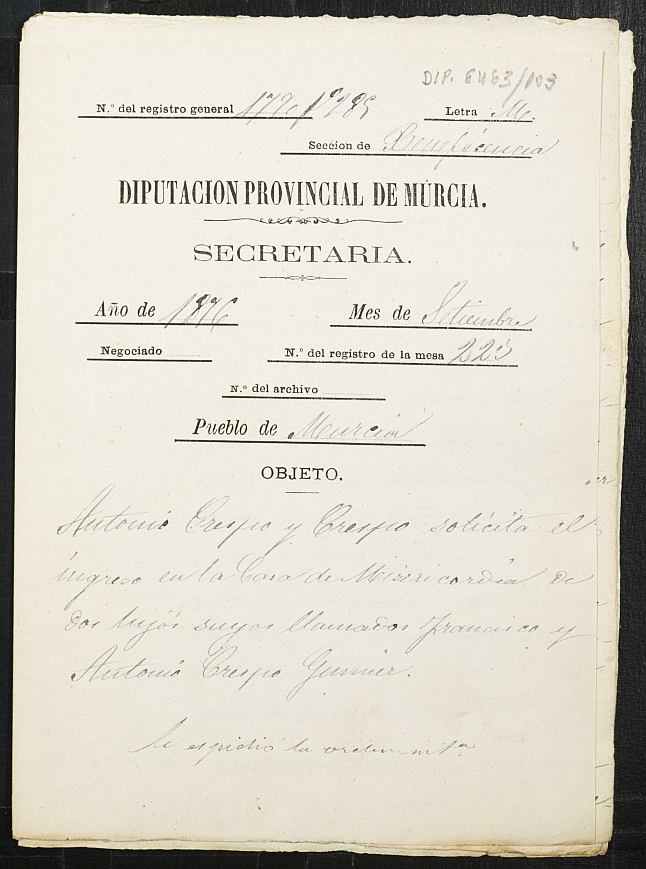 DIP. 6463/103
N.º del registro general 1796/1985
Letra M.
Seccion de Beneficencia
DIPUTACION PROVINCIAL DE MURCIA.
SECRETARIA.
Año de 1876
Mes de Setiembre
Negociado
N.º del registro de la mesa 223
N.º del archivo
Pueblo de Murcia
OBJETO.
Antonio Crespo y Crespo solicita el
ingreso en la Casa de Misericordia de
dos hijos suyos llamados Francisco y
Antonio Crespo
Se espidió la orden